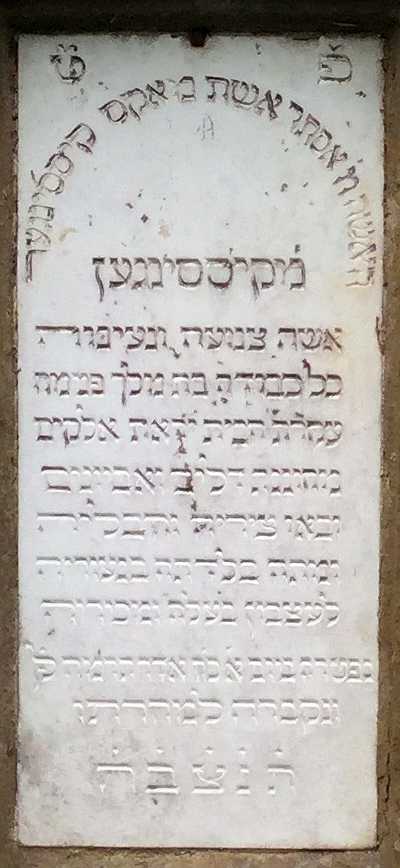 פ ט
האשה מ אסתר אשת מאקס קיססינגער
מקיססינגען
אשה צנועה ונעימה
כל כבודה בת מלך פנימה
עטרת הבית יראת אלקים
מחוננת דלים ואביונים
ובאו ציריה וחבליה
ומתה בלדתה בנעוריה
לעצבון בעלה ומכיריה
נפטרה ביום א אדר תרמה
ונקברה למחרתו
ת נ צ ב ה